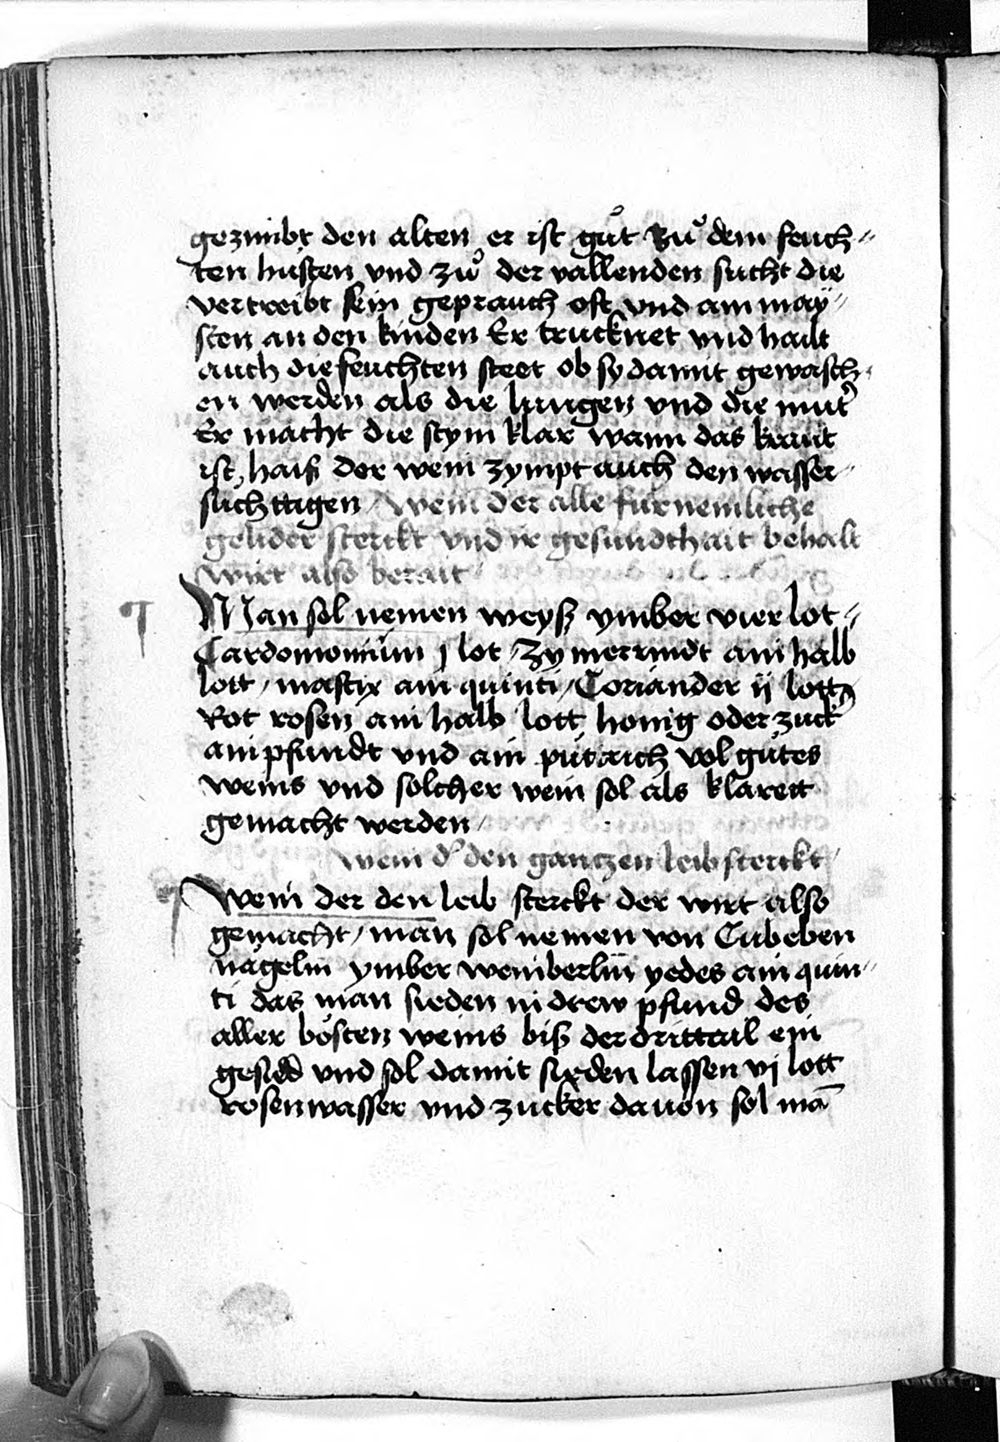 gezimbt den alten er ist gůt zů dem feuch-
ten husten vnd zů der vallenden sucht die
vertreibt sein geprauch oft vnd am may-
sten an den kinden Er trucknet vnd hailt
auch die feuchten steet ob sy damit gewasch-
en werden als die lungen vnd die mut̓
Er macht die stym klar wann das kraut
ist haiß der wein zympt auch den wasser-
suchttigen / wein der alle furnemliche
gelider sterckt vnd ir gesundthait behalt
wirt also berait
Man sol nemen weyß ymber vier lot-
Cardomomum j lot / zymerrindt ain halb
lott / mastix ain quinti / Coriander ij lott
Rot rosen ain halb lott honig oder zuck̓
ain pfundt vnd ain putrich vol gutes
weins vnd solcher wein sol als klarett
gemacht werden /
wein d̓ den gantzen leib sterckt /
Wein der den leib sterckt der wirt also
gemacht / man sol nemen von Cubeben
nägelin ymber weinberlin yedes ain quin-
ti das man sieden in drew pfund des
aller bösten weins biß der drittail ein
gesied vnd sol damit sieden lassen vj lott
rosenwasser vnd zucker dauon sol mā